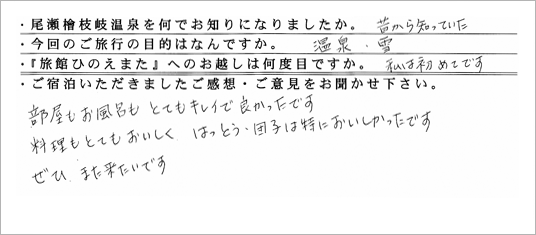 ・尾瀬檜枝岐温泉を何でお知りになりましたか。 昔から知っていた
・今回のご旅行の目的はなんですか。 温泉・雪
・『旅館ひのえまた』へのお越しは何度目ですか。 私は初めてです
・ご宿泊いただきましたご感想・ご意見をお聞かせ下さい。
部屋もお風呂も とてもキレイで良かったです
料理もとてもおいしく はっとう・団子は特においしかったです
ぜひ また来たいです